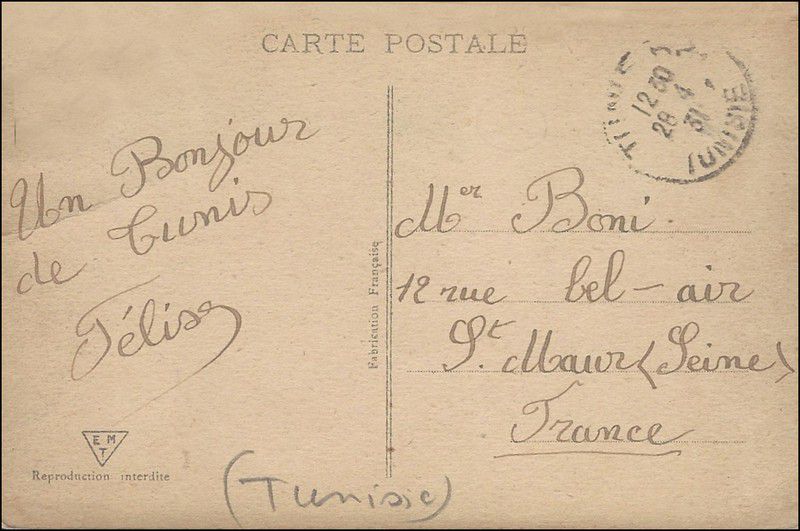 CARTE POSTALE
Un Bonjour
de Tunis
Félise
Mer Boni.
12 rue bel-air
St. Maur (Seine)
France
Fabrication Française
12 30
28 4
31
TUNISIE
EMT
Reproduction interdite
(Tunisie)